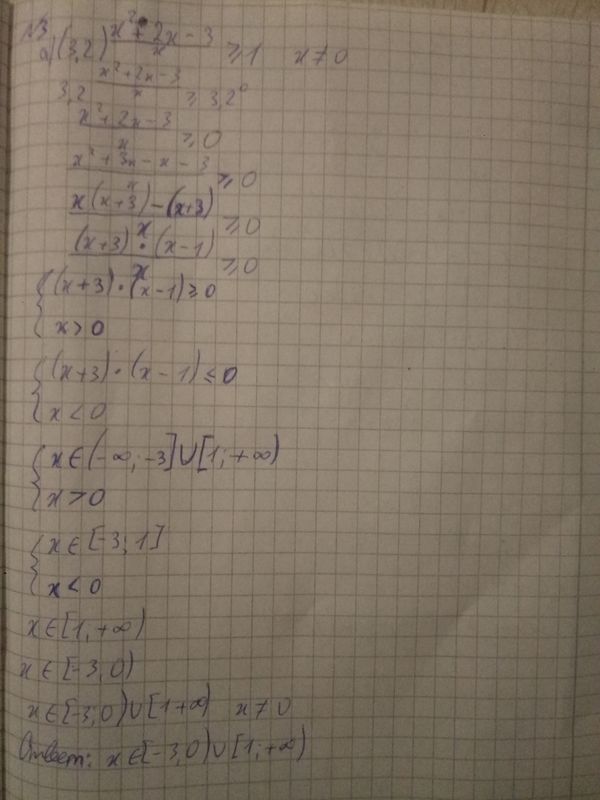 №3
а) (3,2)^((x²+2x-3)/x) ⩾ 1 x≠0
3,2^((x²+2x-3)/x) ⩾ 3,2⁰
(x²+2x-3)/x ⩾ 0
(x²+3x-x-3)/x ⩾ 0
(x(x+3)-(x+3))/x ⩾ 0
((x+3)·(x-1))/x ⩾ 0
{ (x+3)·(x-1)⩾0
x>0
{ (x+3)·(x-1)⩽0
x<0
{ x∈(-∞;-3]∪[1;+∞)
x>0
{ x∈[-3;1]
x<0
x∈[1,+∞)
x∈[-3,0)
x∈[-3;0)∪[1+∞) x≠0
Ответ: x∈[-3,0)∪[1;+∞)